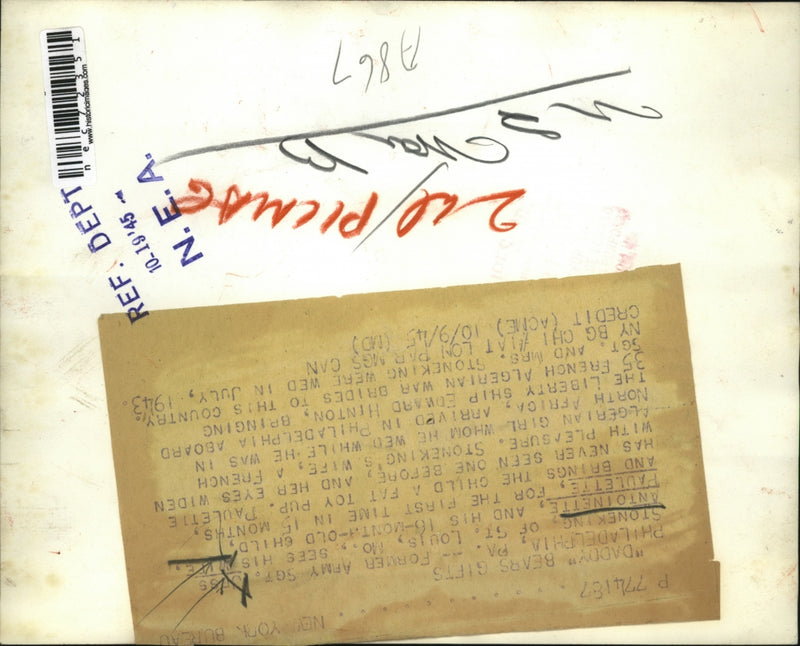 nec72351
www.historicimages.com
REF. DEPT
10-19'45
N. E. A.
A867
2 col/PICMAG
P 774187 NEW YORK BUREAU
"DADDY" BEARS GIFTS
PHILADELPHIA, PA. -- FORMER ARMY SGT.
STONEKING, OF ST. LOUIS, MO., SEES HIS WIFE,
ANTOINETTE, AND HIS 16-MONTH-OLD CHILD,
PAULETTE, FOR THE FIRST TIME IN 15 MONTHS,
AND BRINGS THE CHILD A FAT TOY PUP. PAULETTE
HAS NEVER SEEN ONE BEFORE, AND HER EYES WIDEN
WITH PLEASURE. STONEKING'S, WIFE, A FRENCH
ALGERIAN GIRL WHOM HE WED WHILE HE WAS IN
NORTH AFRICA, ARRIVED IN PHILADELPHIA ABOARD
THE LIBERTY SHIP EDWARD HINTON, BRINGING
35 FRENCH ALGERIAN WAR BRIDES TO THIS COUNTRY.
SGT. AND MRS. STONEKING WERE WED IN JULY, 1943.
NY BG CHI LON PAR MGS CAN
CREDIT (ACME) 10/9/45 (MD)